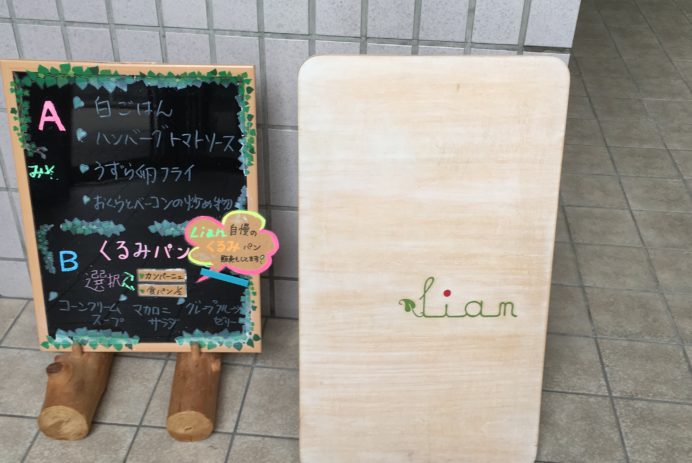 A
白ごはん
ハンバーグトマトソース
みそ
うずら卵フライ
おくらとベーコンの炒め物
B
くるみパン
Lian自慢の
くるみパン
選択
カンパーニュ
食パン
コーンクリーム
スープ
マカロニ
サラダ
グレープフルーツ
ゼリー
Lian